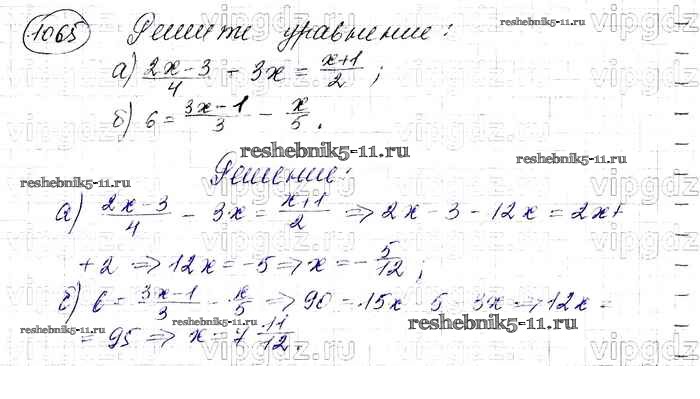 1065 Решите уравнение: reshebnik5-11.ru
а) (2x-3)/4 - 3x = (x+1)/2 ;
б) 6 = (3x-1)/3 - x/5 .
reshebnik5-11.ru reshebnik5-11.ru
Решение:
reshebnik5-11.ru reshebnik5-11.ru
а) (2x-3)/4 - 3x = (x+1)/2 => 2x - 3 - 12x = 2x+
+ 2 => 12x = -5 => x = - 5/12 ;
б) 6 = (3x-1)/3 - x/5 => 90 = 15x - 5 - 3x => 12x =
reshebnik5-11.ru reshebnik5-11.ru reshebnik5-11.ru
= 95 => x = 7 11/12 .
vipgdz.ru